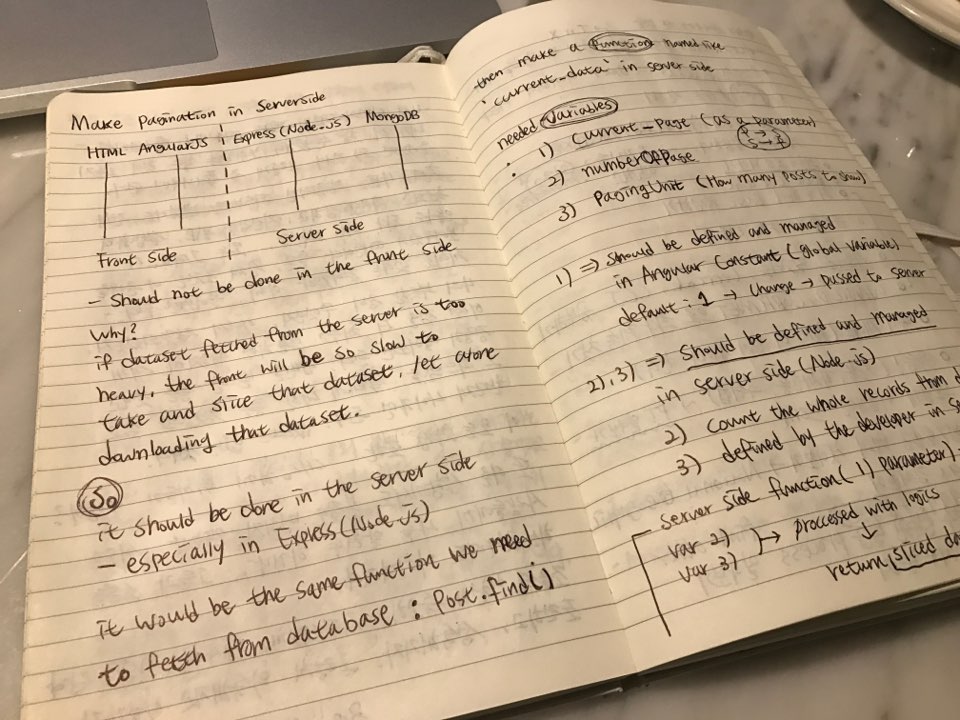 Make Pagination in Serverside
HTML AngularJS Express (Node.js) MongoDB
Front side Server side
- Should not be done in the front side
Why?
if dataset fetched from the server is too
heavy, the front will be so slow to
take and slice that dataset, let alone
downloading that dataset.
So
it should be done in the server side
- especially in Express (Node.js)
it would be the same function we need
to fetch from database : Post.find()
then make a function named like
'current_data' in server side
needed variables
: 1) Current_page (as a parameter)
2) numberOfPage
3) PagingUnit (How many posts to show)
1) ⇒ Should be defined and managed
in Angular Constant (global variable)
default : 1 → change → passed to server
2), 3) ⇒ Should be defined and managed
in server side (Node.js)
2) Count the whole records from
3) defined by the developer in
server side function ( 1) parameter)
var 2)
var 3) → proccessed with logics
↓
return sliced